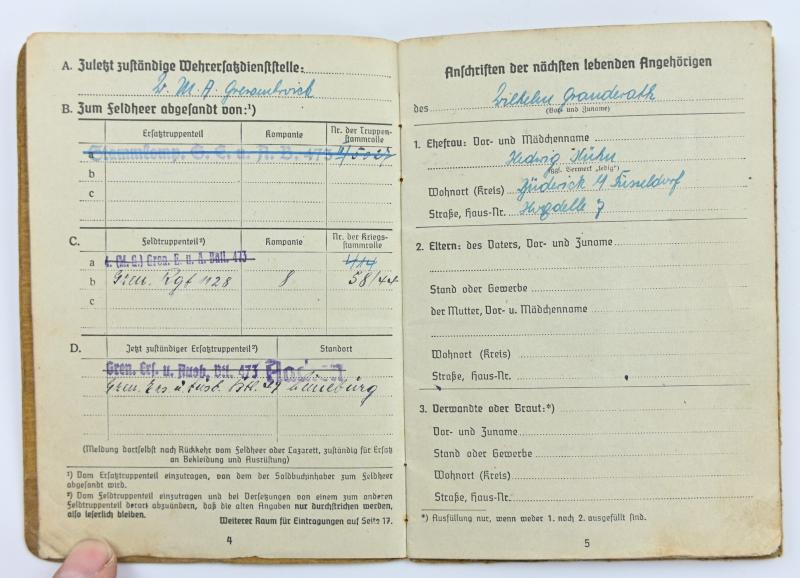 A. Zuletzt zuständige Wehrersatzdienststelle:
W. M. A. Grevenbroich
B. Zum Feldheer abgesandt von:¹)
Ersatztruppenteil Kompanie Nr. der Truppen-
stammrolle
a Stammkomp. G. E. u. A. B. 473
b
c
C. Feldtruppenteil²) Kompanie Nr. der Kriegs-
stammrolle
a 4. (M. G.) Gren. E. u. A. Batl. 473 414
b Gren. Rgt 1128 8 58/44
c
D. Jetzt zuständiger Ersatztruppenteil²) Standort
Gren. Ers. u. Ausb. Btl. 473 Aachen
Gren. Ers u. Ausb. Btl. Lüneburg
(Meldung dortselbst nach Rückkehr vom Feldheer oder Lazarett, zuständig für Ersatz
an Bekleidung und Ausrüstung)
¹) Vom Ersatztruppenteil einzutragen, von dem der Soldbuchinhaber zum Feldheer
abgesandt wird.
²) Vom Feldtruppenteil einzutragen und bei Versetzungen von einem zum anderen
Feldtruppenteil derart abzuändern, daß die alten Angaben nur durchstrichen werden,
also leserlich bleiben.
Weiterer Raum für Eintragungen auf Seite 17.
4
Anschriften der nächsten lebenden Angehörigen
des Wilhelm Granderath
(Vor- und Zuname)
1. Ehefrau: Vor- und Mädchenname
Hedwig Kühn
(ggf. Vermerk „ledig“)
Wohnort (Kreis) Büderich b/ Düsseldorf
Straße, Haus-Nr. 7
2. Eltern: des Vaters, Vor- und Zuname
Stand oder Gewerbe
der Mutter, Vor- u. Mädchenname
Wohnort (Kreis)
Straße, Haus-Nr.
3. Verwandte oder Braut:*)
Vor- und Zuname
Stand oder Gewerbe
Wohnort (Kreis)
Straße, Haus-Nr.
*) Ausfüllung nur, wenn weder 1. noch 2. ausgefüllt sind.
5